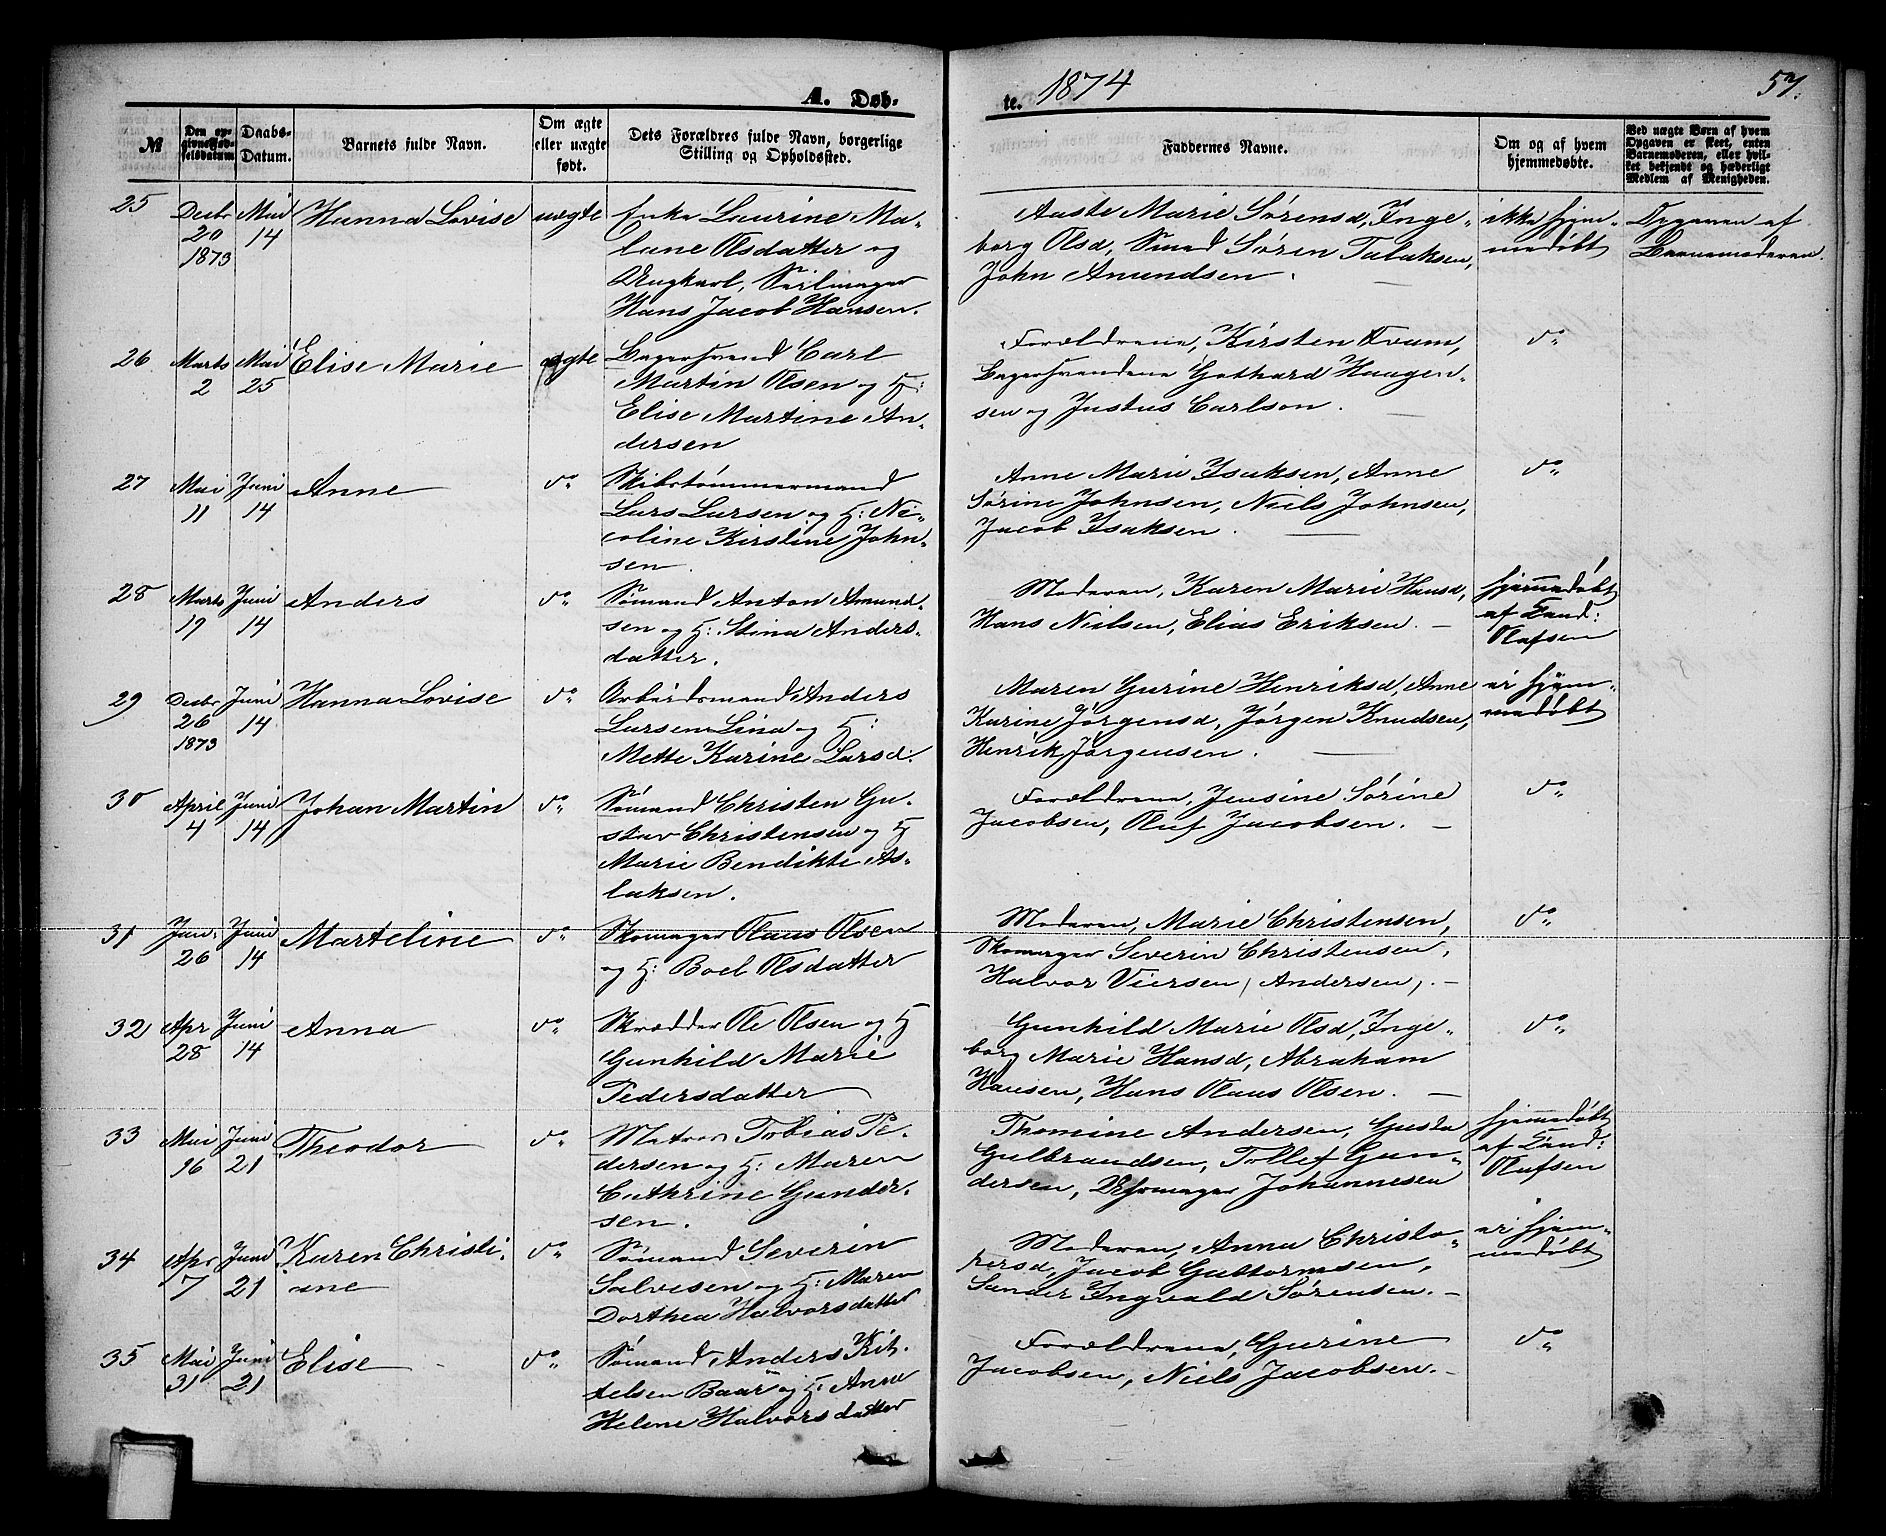 A. Døb-
te. 1874
57.
№
Den opgivne Fødselsdatum
Daabs-Datum.
Barnets fulde Navn.
Om ægte eller uægte født.
Dets Forældres fulde Navn, borgerlige Stilling og Opholdssted.
Faddernes Navne.
Om og af hvem hjemmedøbte.
Ved uægte Børn af hvem Opgaven er skeet, enten Barnemoderen, eller hvilket bekjendt og hæderligt Medlem af Menigheden.
25 Decbr Mai Hanna Lovise uægte Enke Laurine Ma-
20 14 lene Olsdatter og
1873 Ungkarl, Seilmager
Hans Jacob Hansen.
Aaste Marie Sørensd, Inge- ikke hjem- Opgaven af
borg Olsd, Smed Søren Talaksen, medøbt Barnemoderen.
John Amundsen.
26 Marts Mai Elise Marie ægte Bagersvend Carl
2 25 Martin Olsen og H:
Elise Martine An-
dersen
Forældrene, Kirsten Kvam, do
Bagersvendene Gothard Haagen-
sen og Justus Carlson.
27 Mai Juni Anne do Skibstømmermand
11 14 Lars Larsen og H: Ni-
coline Kirstine John-
sen.
Anne Marie Isaksen, Anne do
Sørine Johnsen, Niels Johnsen,
Jacob Isaksen.
28 Marts Juni Anders do Sømand Anton Amund-
19 14 sen og H: Stina Anders-
datter.
Moderen, Karen Marie Hansd, hjemmedøbt
Hans Nielsen, Elias Eriksen. af Cand:
Olafsen
29 Decbr Juni Hanna Lovise do Arbeidsmand Anders
26 14 Larsen Lina og H:
1873 Mette Karine Larsd:
Maren Gurine Henriksd, Anne ei hjem-
Karine Jørgensd, Jørgen Knudsen, medøbt
Henrik Jørgensen.
30 April Juni Johan Martin do Sømand Christen Gu-
4 14 stav Christensen og H
Marie Bendikte As-
laksen.
Forældrene, Jensine Sørine do
Jacobsen, Oluf Jacobsen.
31 Jan. Juni Marteline do Skomager Olaus Olsen
26 14 og H: Boel Olsdatter
Moderen, Marie Christensen, do
Skomager Severin Christensen,
Halvor Viersen (Andersen).
32 Apr Juni Anna do Skrædder Ole Olsen og H
28 14 Gunhild Marie
Pedersdatter
Gunhild Marie Olsd, Inge- do
borg Marie Hansd, Abraham
Hansen, Hans Olaus Olsen.
33 Mai Juni Theodor do Matros Tobias Pe-
16 21 dersen og H: Maren
Cathrine Gunder-
sen.
Thomine Andersen, Gusta hjemmedøbt
Gulbrandsen, Tollef Gun- af Cand:
dersen, Uhrmager Johannesen Olafsen
34 Apr Juni Karen Christi- do Sømand Severin
7 21 ane Salvesen og H: Maren
Dorthea Halvorsdatter
Moderen, Anna Christo- ei hjem-
fersd, Jacob Guttormsen, medøbt
Sander Ingvald Sørensen.
35 Mai Juni Elise do Sømand Anders Kit-
31 21 telsen Baar og H: Anne
Helene Halvorsdatter
Forældrene, Gurine do
Jacobsen, Niels Jacobsen.